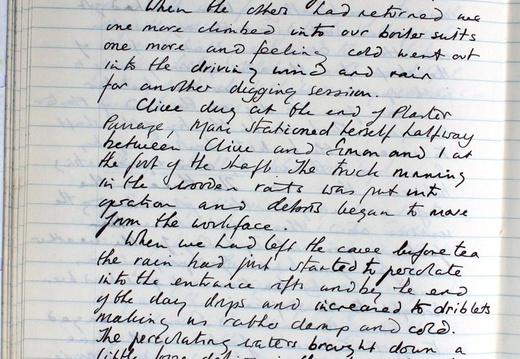 When the other had returned we
one more climbed into our boiler suits
one more and feeling cold went out
into the driving wind and rain
for another digging session.
Clive dug at the end of Plaster
Passage, Marie stationed herself halfway
between Clive and Simon and I at
the foot of the shaft. The truck running
in the wooden rails was put into
operation and debris began to move
from the workface.
When we had left the cave before tea
the rain had just started to percolate
into the entrance rifts and by the end
of the day drips and increased to driblets
making us rather damp and cold.
The percolating waters brought down a
little